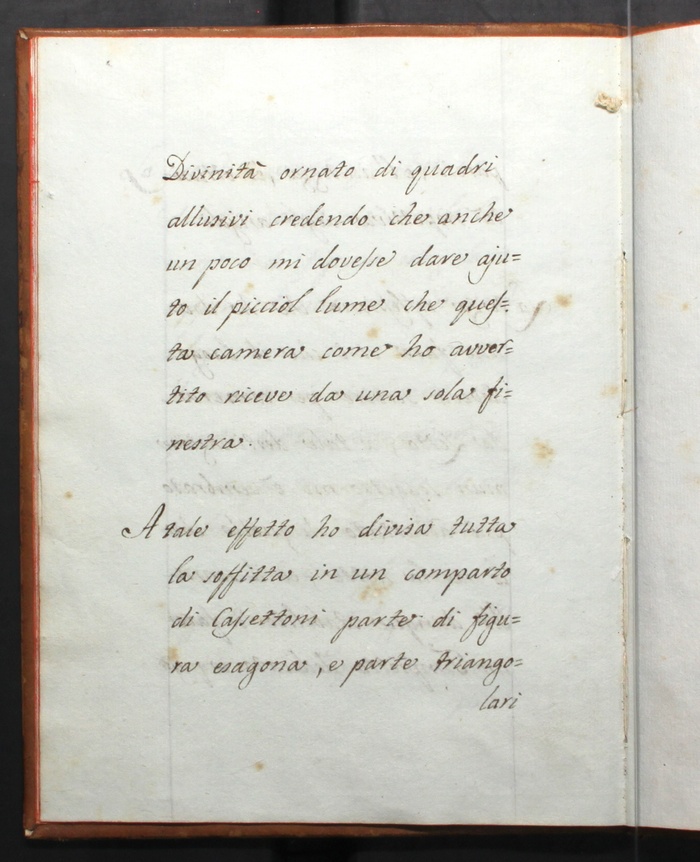 Divinità ornato di quadri
allusivi credendo che anche
un poco mi dovesse dare aju=
to il picciol lume che ques=
ta camera come ho avver=
tito riceve da una sola fi=
nestra.
A tale effetto ho divisa tutta
la soffitta in un comparto
di Cassettoni parte di figu=
ra esagona, e parte triango=
lari